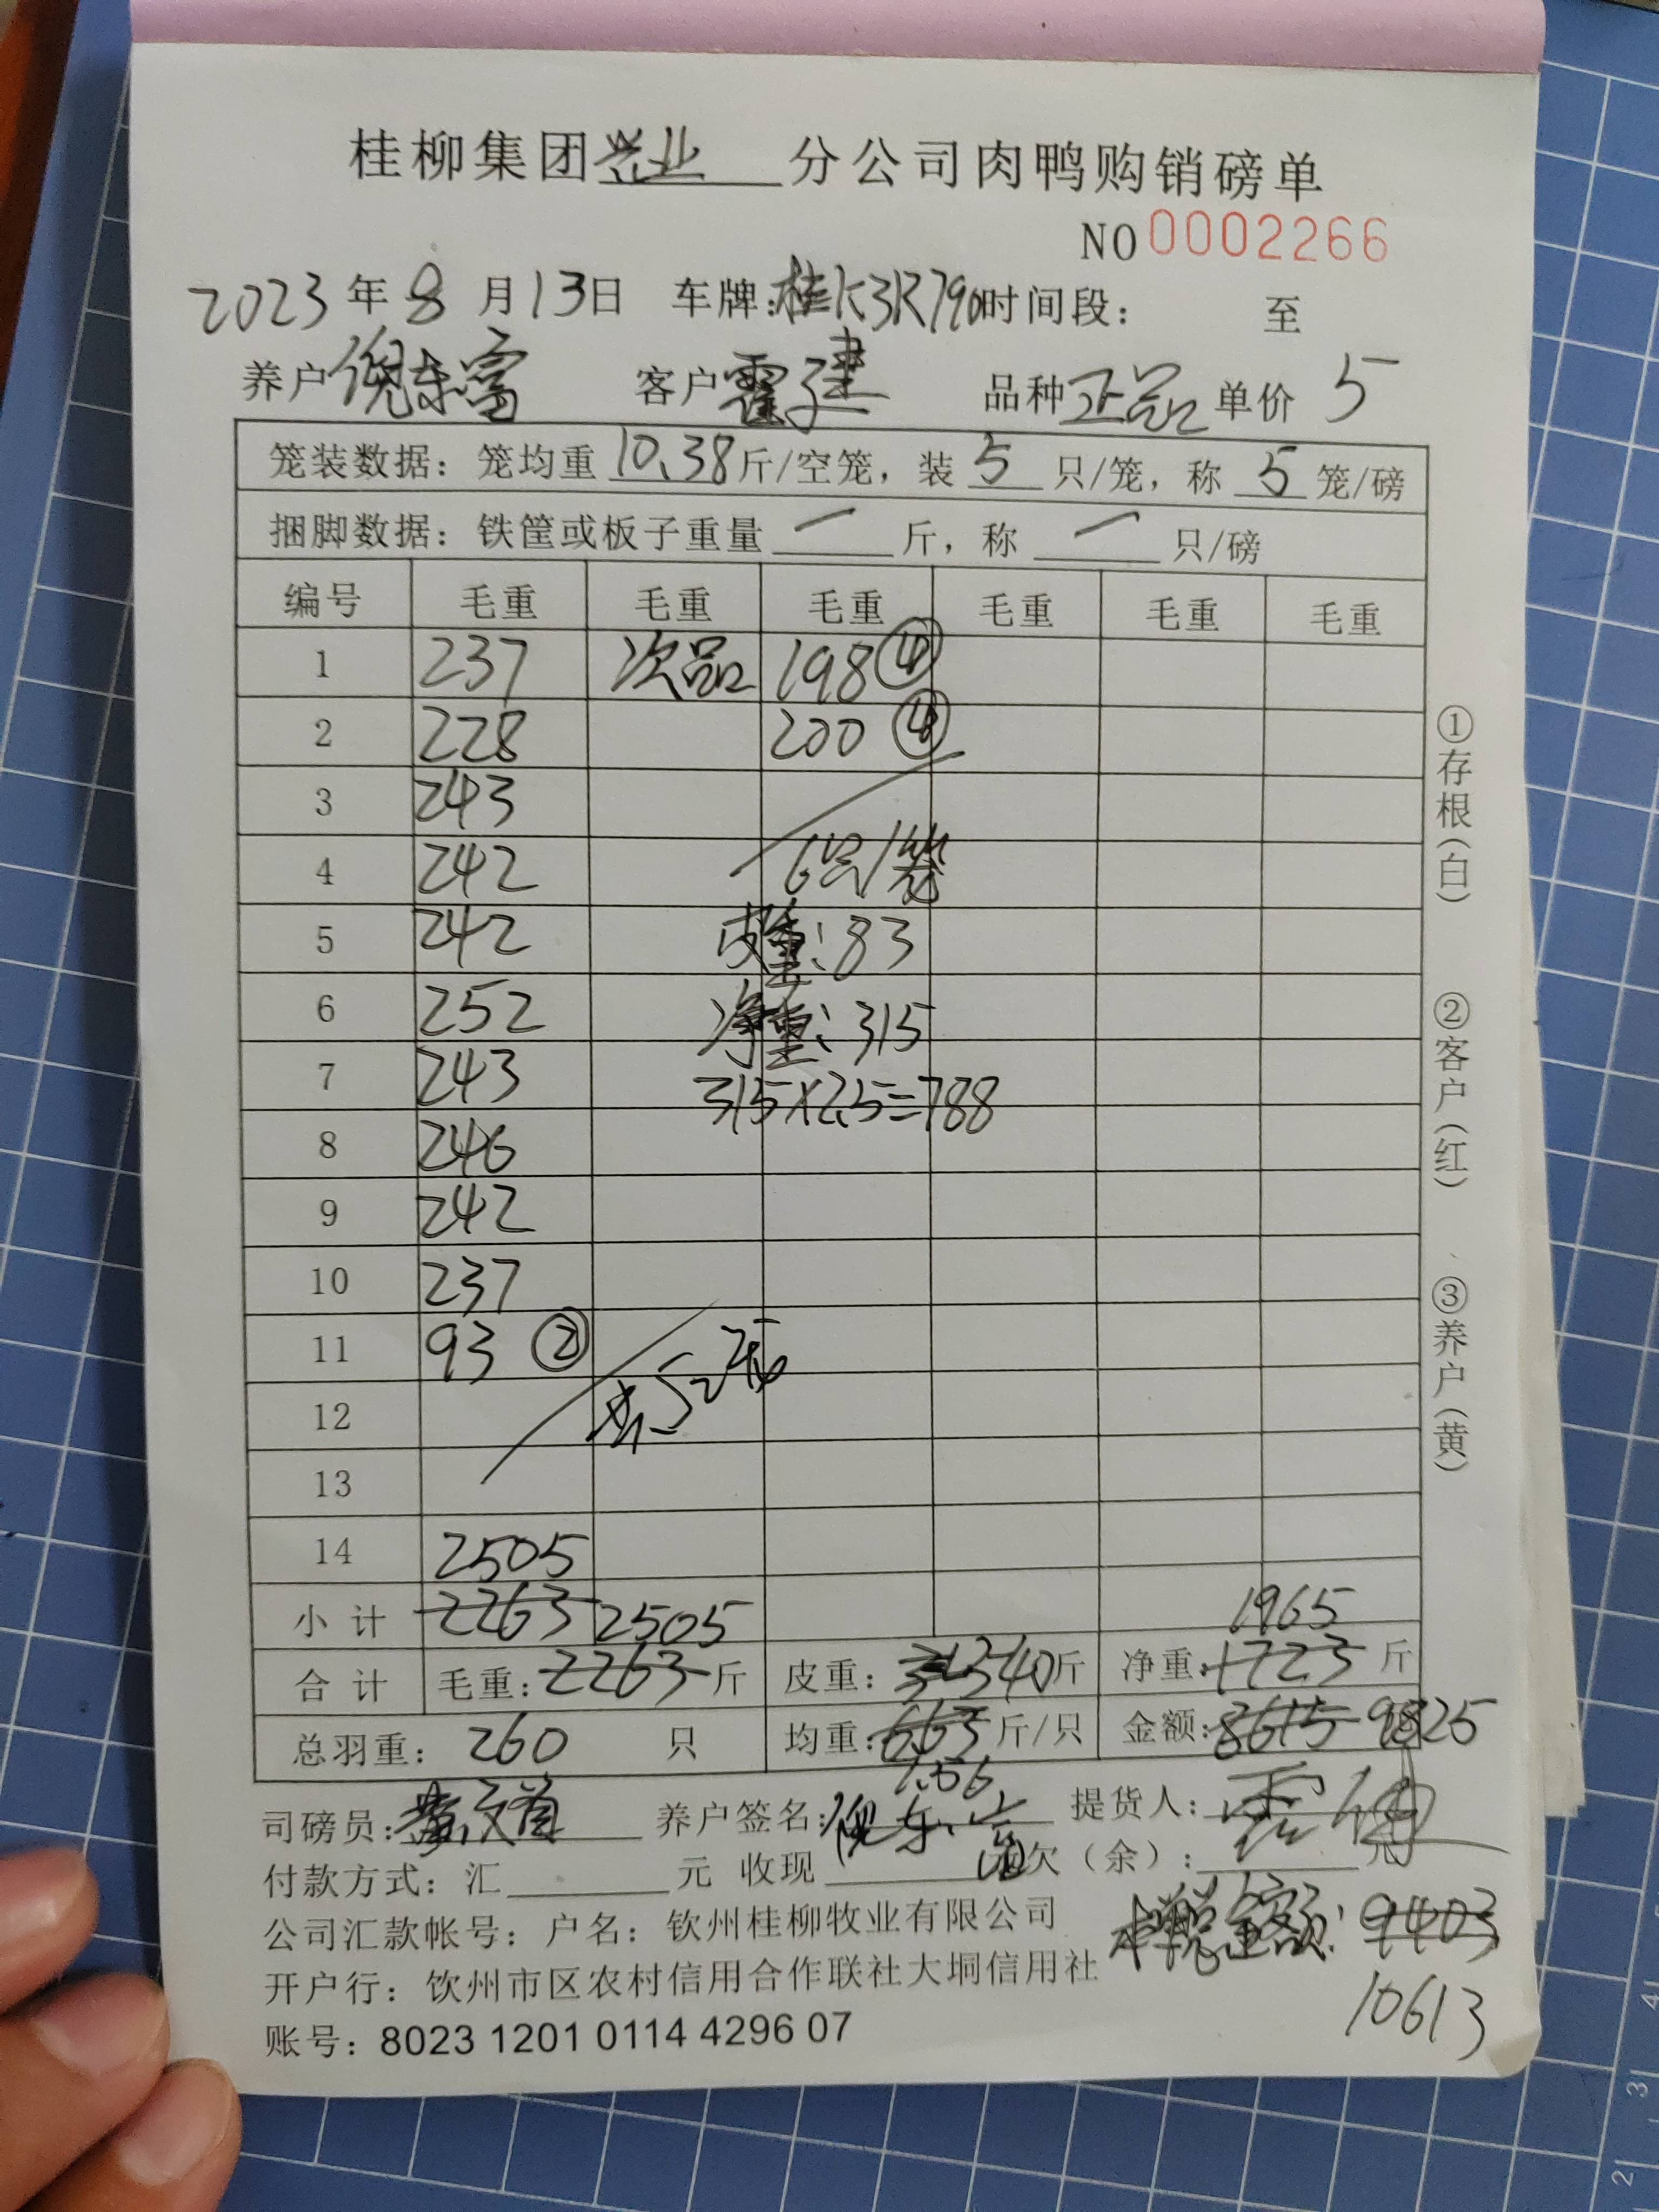 桂柳集团兴业分公司肉鸭购销磅单
NO 0002266
2023年8月13日 车牌:桂K3R790 时间段: 至
养户 倪东富 客户 霍建 品种 正品 单价 5
笼装数据: 笼均重 10.38 斤/空笼, 装 5 只/笼, 称 5 笼/磅
捆脚数据: 铁筐或板子重量 一 斤, 称 一 只/磅
编号 毛重 毛重 毛重 毛重 毛重 毛重
1 237 次品 198 ④
2 228 200 ④
3 243
4 242 6只/笼
5 242 皮重:83
6 252 净重:315
7 243 315×2.5=788
8 246
9 242
10 237
11 93 ②
12 共52笼
13
14 2505
小计 2263 2505 1965
合计 毛重:2263斤 皮重:340斤 净重:1723斤
总羽重: 260 只 均重:6.63斤/只 金额:8615 9825
7.56
司磅员: 养户签名:倪东富 提货人:霍建
付款方式: 汇 元 收现 欠(余): 元
公司汇款帐号: 户名: 钦州桂柳牧业有限公司
本磅总金额: 9403
开户行: 饮州市区农村信用合作联社大垌信用社
10613
账号: 8023 1201 0114 4296 07
①存根(白) ②客户(红) ③养户(黄)